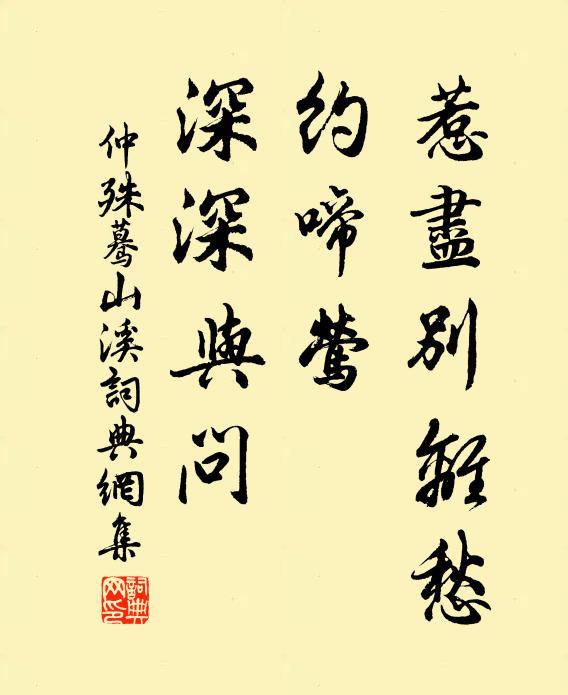 惹盡別離愁
約啼鶯
深深與問
仲殊驀山溪詞典網集
詞典網印